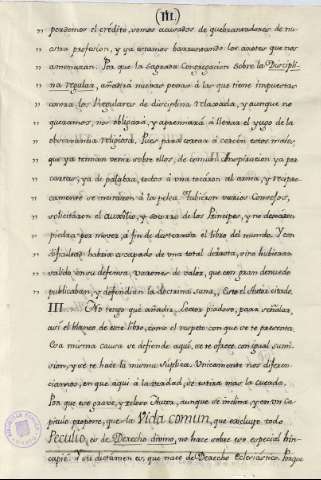 (III.)
perdemos el crédito, vemos acusados de quebrantadores de nu-
" estra profesion, y ya estamos barruntando los azotes que nos
" amenazan. Por que la sagrada Congregacion sobre la Discipli-
" na regular, añadirá nuevas penas à las que tiene impuestas
" contra los Regulares de disciplina relaxada, y aunque no
" queramos, nos obligará, y apremiará à llevar el yugo de la
" observancia religiosa. Pues para cerrar à cercén estos males,
" que ya tenian vena sobre ellos, de comun inspiracion ya por
" cartas, ya de palabra, todos à una tocaron al arma, y
" se à la pelea. Tubieron varios Consejos,
" solicitaron el auxilio, y socorro de los Principes, y no dexaron
" piedra por mover, à fin de desterrar el libro del mundo. Y con
" dificultad habria escapado de una total derrota, si no hubieran
" salido en su defensa, varones de valor, que con gran denuedo
" publicaban, y defendian la doctrina sana,, Esto el Autor citado.
III. No tengo que añadir, Lector piadoso, para señalar,
asi el blanco de este libro, como el respeto con que se te presenta.
Una misma causa se defiende aquí, se te ofrece con igual sumi-
sion, y se te hace la misma súplica. Unicamente nos diferen-
ciamos, en que aqui à la verdad, se estira mas la cuerda.
Por que ese grave, y zeloso Autor, aunque se inclina, y en un Ca-
pitulo propone, que la Vida comun, que excluye todo
Peculio, es de Derecho divino, no hace sobre eso especial hin-
capié. Y su dictamen es, que nace de Derecho Eclesiástico. Porque